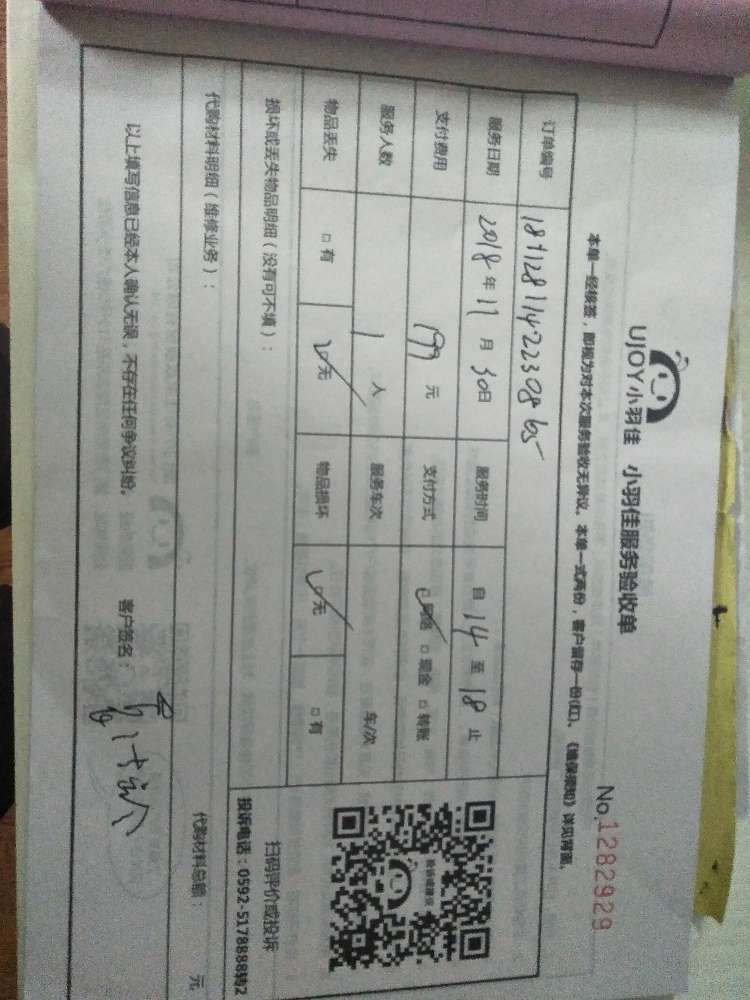 UJOY小羽佳 小羽佳服务验收单
No.1282929
本单一经核签,即视为对本次服务验收无异议。本单一式两份,客户留存一份(红)。《维保须知》详见背面。
订单编号
服务日期 2018年11月30日 服务时间 自14至18止
支付费用 199元 支付方式 ☑网络 □现金 □转账
服务人数 1人 服务车次 车/次
物品丢失 □有 ☑无 物品损坏 ☑无 □有
损坏或丢失物品明细(没有可不填):
扫码评价或投诉
投诉电话:0592-5178888转2
代购材料明细(维修业务):
代购材料总额: 元
以上填写信息已经本人确认无误,不存在任何争议纠纷。 客户签名: